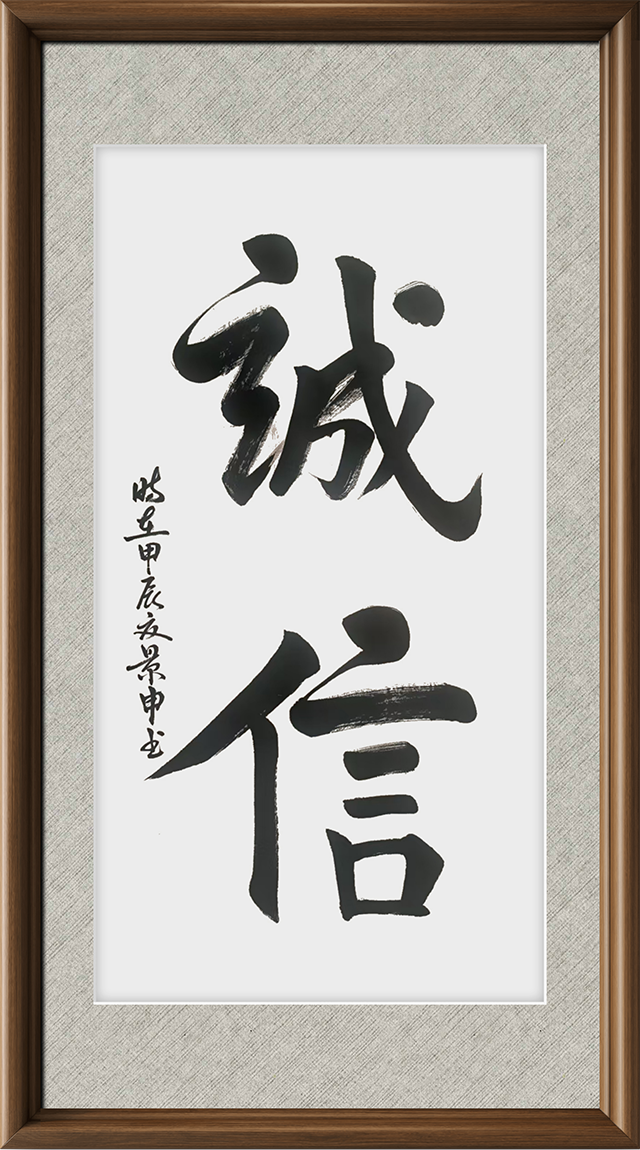 誠信
時在甲辰夏景申书